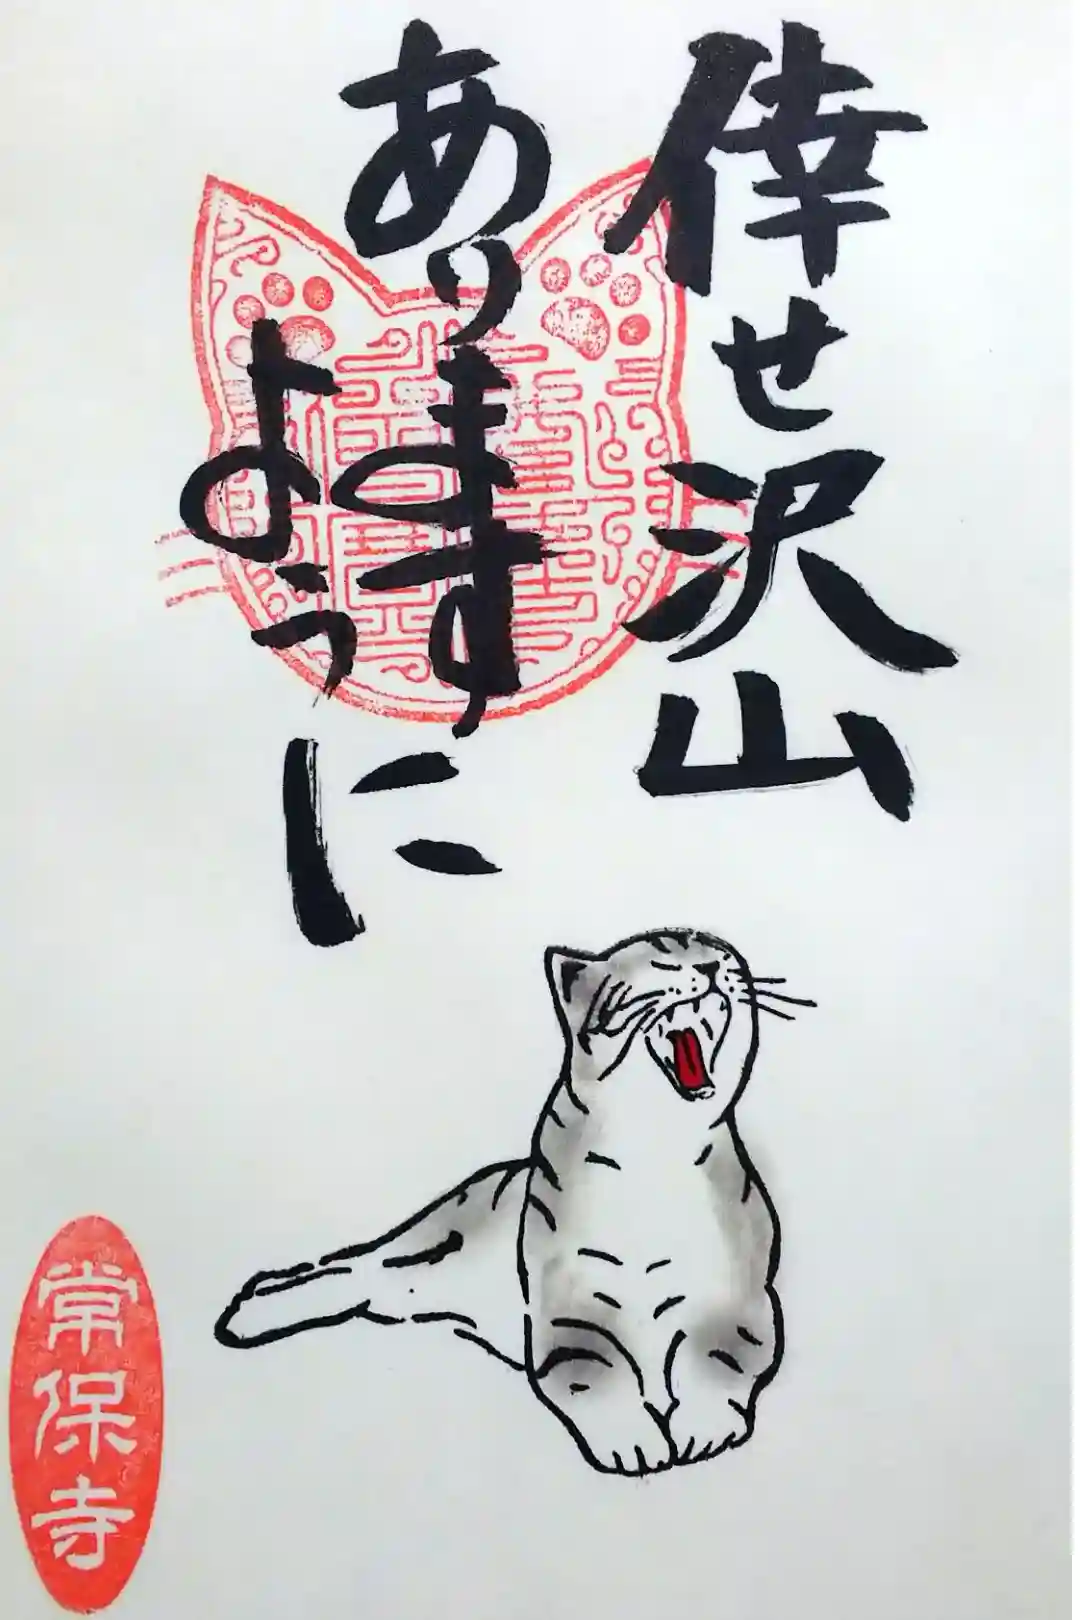 倖せ沢山
ありますように
常保寺